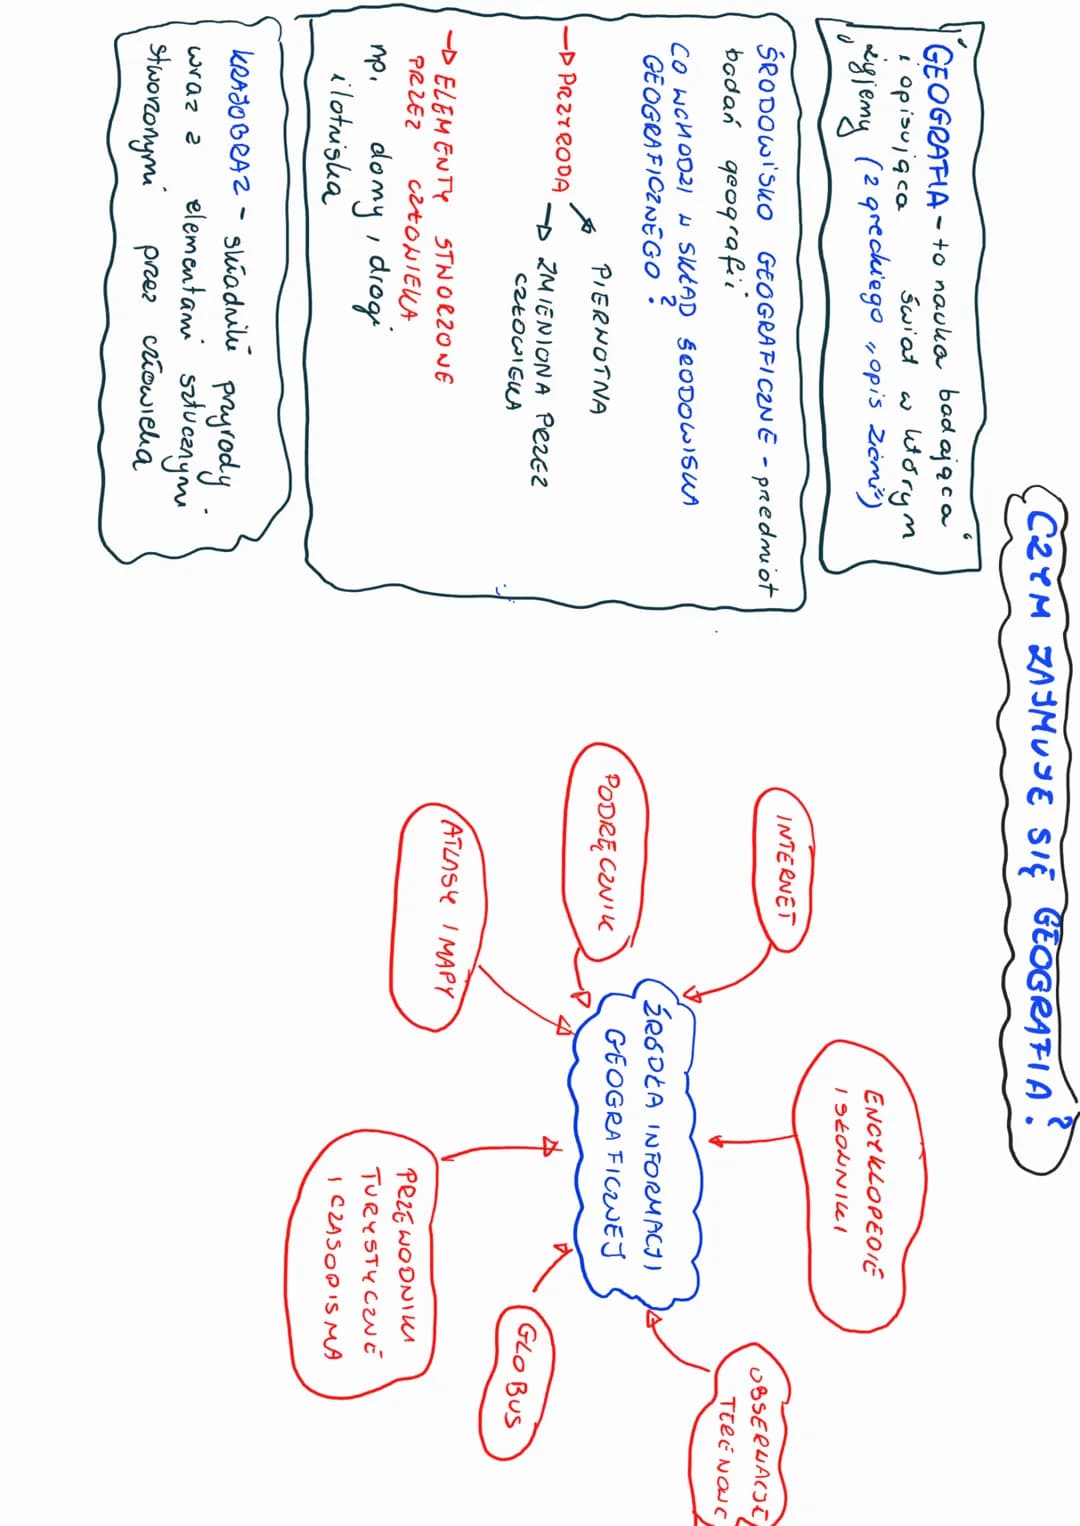 CZYM ZAJMUJE SIĘ GEOGRAFIA?
GEOGRAFIA - to nauka badająca
i opisująca świat w którym
żyjemy (z greckiego „opis ziemi")
ŚRODOWISKO GEOGRAFICZNE - przedmiot
badań geografii
CO WCHODZI W SKŁAD ŚRODOWISKA
GEOGRAFICZNEGO?
PRZYRODA
PIERWOTNA
ZMIENIONA PRZEZ
CZŁOWIEKA
ELEMENTY STWORZONE
PRZEZ CZŁOWIEKA
np. domy, drogi
i lotniska
KRAJOBRAZ - składniki przyrody
wraz z elementami sztucznymi
stworzonymi przez człowieka
INTERNET
ENCYKLOPEDIE
I SŁOWNIKI
OBSERWACJE
TERENOWE
PODRĘCZNIK
ŹRÓDŁA INFORMACJI
GEOGRAFICZNEJ
ATLASY I MAPY
PRZEWODNIKI
TURYSTYCZNE
I CZASOPISMA
GLOBUS